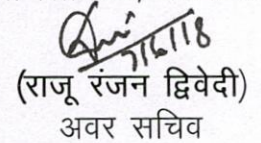 7/6/18
(राजू रंजन द्विवेदी)
अवर सचिव